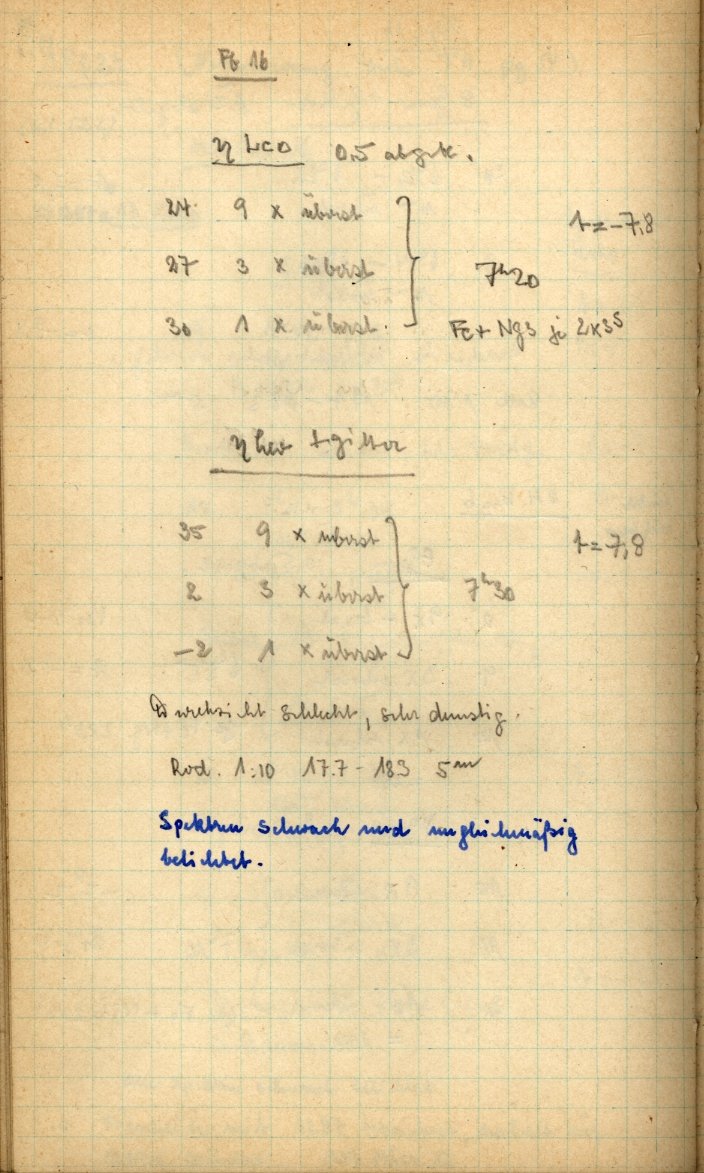 Fb 16
η Leo 0,5 abgek.
24 9 x überst
27 3 x überst
30 1 x überst.
t = -7,8
7h20
Fe + Ng3 je 2x3s
η Leo + gitter
35 9 x überst
2 3 x überst
-2 1 x überst
t = 7,8
7h30
Durchsicht schlecht, sehr dunstig.
Rod. 1:10 17.7 - 18.3 5m
Spektren schwach und ungleichmäßig
belichtet.